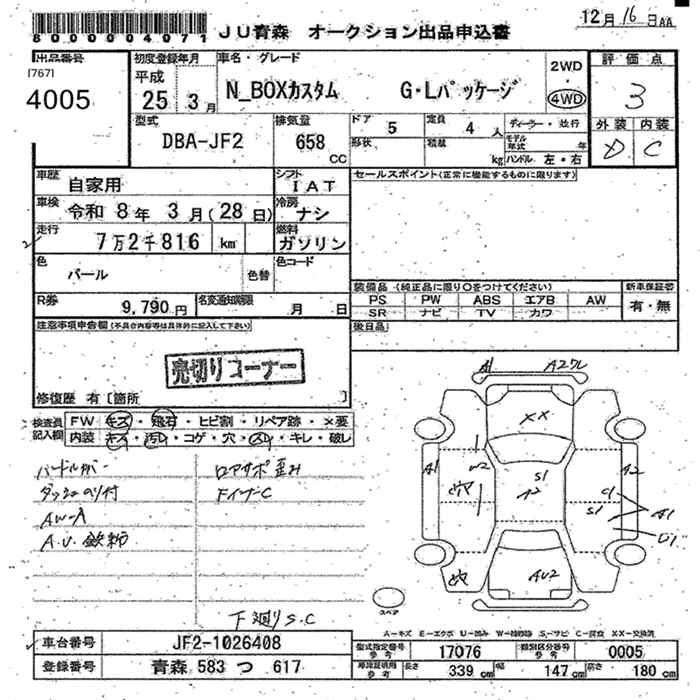 12月16日AA
800004071
JU青森 オークション出品申込書
出品番号
[767]
4005
初度登録年月
平成
25 3月
車名・グレード
N_BOXカスタム G・Lパッケージ
2WD
・
4WD
評価点
3
外装 内装
D C
型式
DBA-JF2
排気量
658
CC
ドア 5
定員 4 人
ディーラー・並行
形状
積載 kg
モデル年式 年
ハンドル 左・右
車歴 自家用
シフト IAT
車検 令和 8年 3月(28日)
冷房 ナシ
走行 7万2千816 km
燃料 ガソリン
色 パール
色替
色コード
R券 9,790円
名変通知期限 月 日
セールスポイント(正常に機能するものに限ります)
装備品 (純正品に限り○をつけてください)
新車保証書
PS PW ABS エアB AW
SR ナビ TV カワ
有・無
後日品
注意事項申告欄(不具合内容等は具体的に記入して下さい)
売切りコーナー
修復歴 有〔箇所 〕
検査員記入欄
FW キズ・飛石・ヒビ割・リペア跡・×要
内装 キズ・汚レ・コゲ・穴・スレ・キレ・破レ
ハンドルカバー
ダッシュのり付
AW-A
A.U.鉄錆
ロアサポ歪み
ドイナーC
下廻りS.C
A1
A2ワレ
XX
A1
S1
A2
A2
C1
S1
A1
U1
AU2
スペア
A-キズ E-エクボ U-凹み W-補修跡 S-サビ C-腐食 XX-交換済
車台番号 JF2-1026408
登録番号 青森 583 つ 617
型式指定番号 参考 17076
類別区分番号 参考 0005
車庫証明用 参考 長さ 339 cm 幅 147 cm 高さ 180 cm